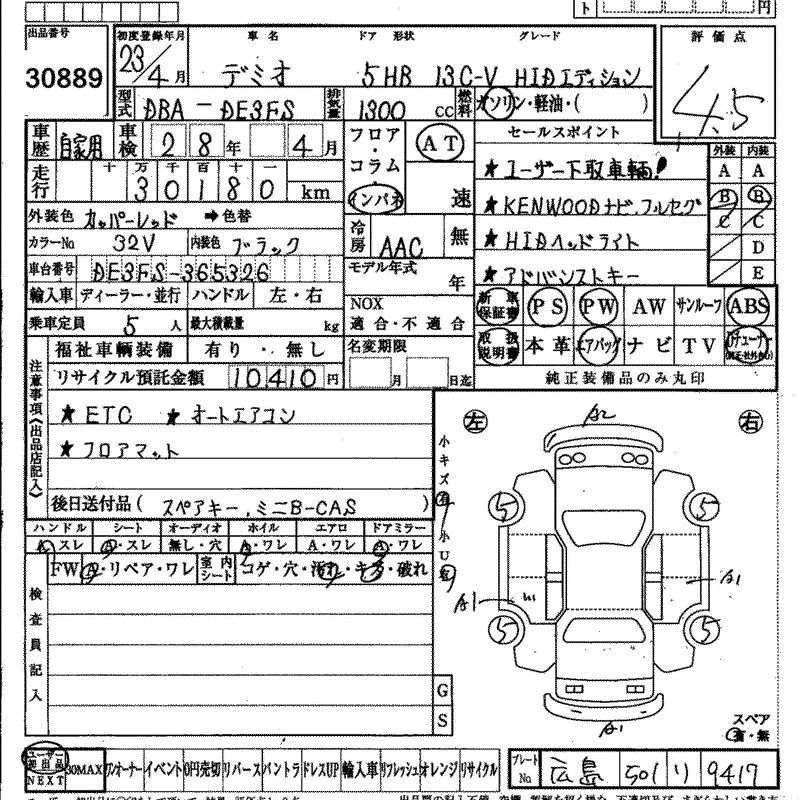 出品番号 初度登録年月 車名 ドア 形状 グレード 評価点
30889 23/4月 デミオ 5HB 13C-V HIDエディション 4.5
型式 DBA-DE3FS 排気量 1300 cc 燃料 ガソリン・軽油・( )
車歴 自家用 車検 28年 4月 フロア・コラム・インパネ AT 速 セールスポイント 外装 内装
走行 十万千百十一
30180 km
★ユーザー下取車輌!
★KENWOODナビ.フルセグ
★HIDヘッドライト
★アドバンストキー
A A
B B
C C
D
E
外装色 カッパーレッド ➡色替
カラーNo 32V 内装色 ブラック 冷房 AAC 無
車台番号 DE3FS-365326 モデル年式 年
輸入車 ディーラー・並行 ハンドル 左・右 NOX 適合・不適合
乗車定員 5人 最大積載量 kg
新車保証書 PS PW AW サンルーフ ABS
取扱説明書 本革 エアバッグ ナビ TV
純正装備品のみ丸印
福祉車輌装備 有り・無し 名変期限 月 日迄
リサイクル預託金額 10410円
注意事項《出品店記入》
★ETC ★オートエアコン
★フロアマット
後日送付品( スペアキー,ミニB-CAS )
ハンドル シート オーディオ ホイル エアロ ドアミラー
スレ ・スレ 無し・穴 A・ワレ A・ワレ A・ワレ
FW A・リペア・ワレ 室内シート コゲ・穴・汚れ・キズ・破れ
検査員記入
小キズ有
小U有
左 右
A2
5 5
A1 A1
5 5
A1
G
S
スペア
有・無
ユーザー買出品 NEXT 30MAX ワンオーナー イベント 0円売切 リバース パントラ ドレスUP 輸入車 リフレッシュ オレンジ リサイクル
プレートNo 広島 501 り 9417